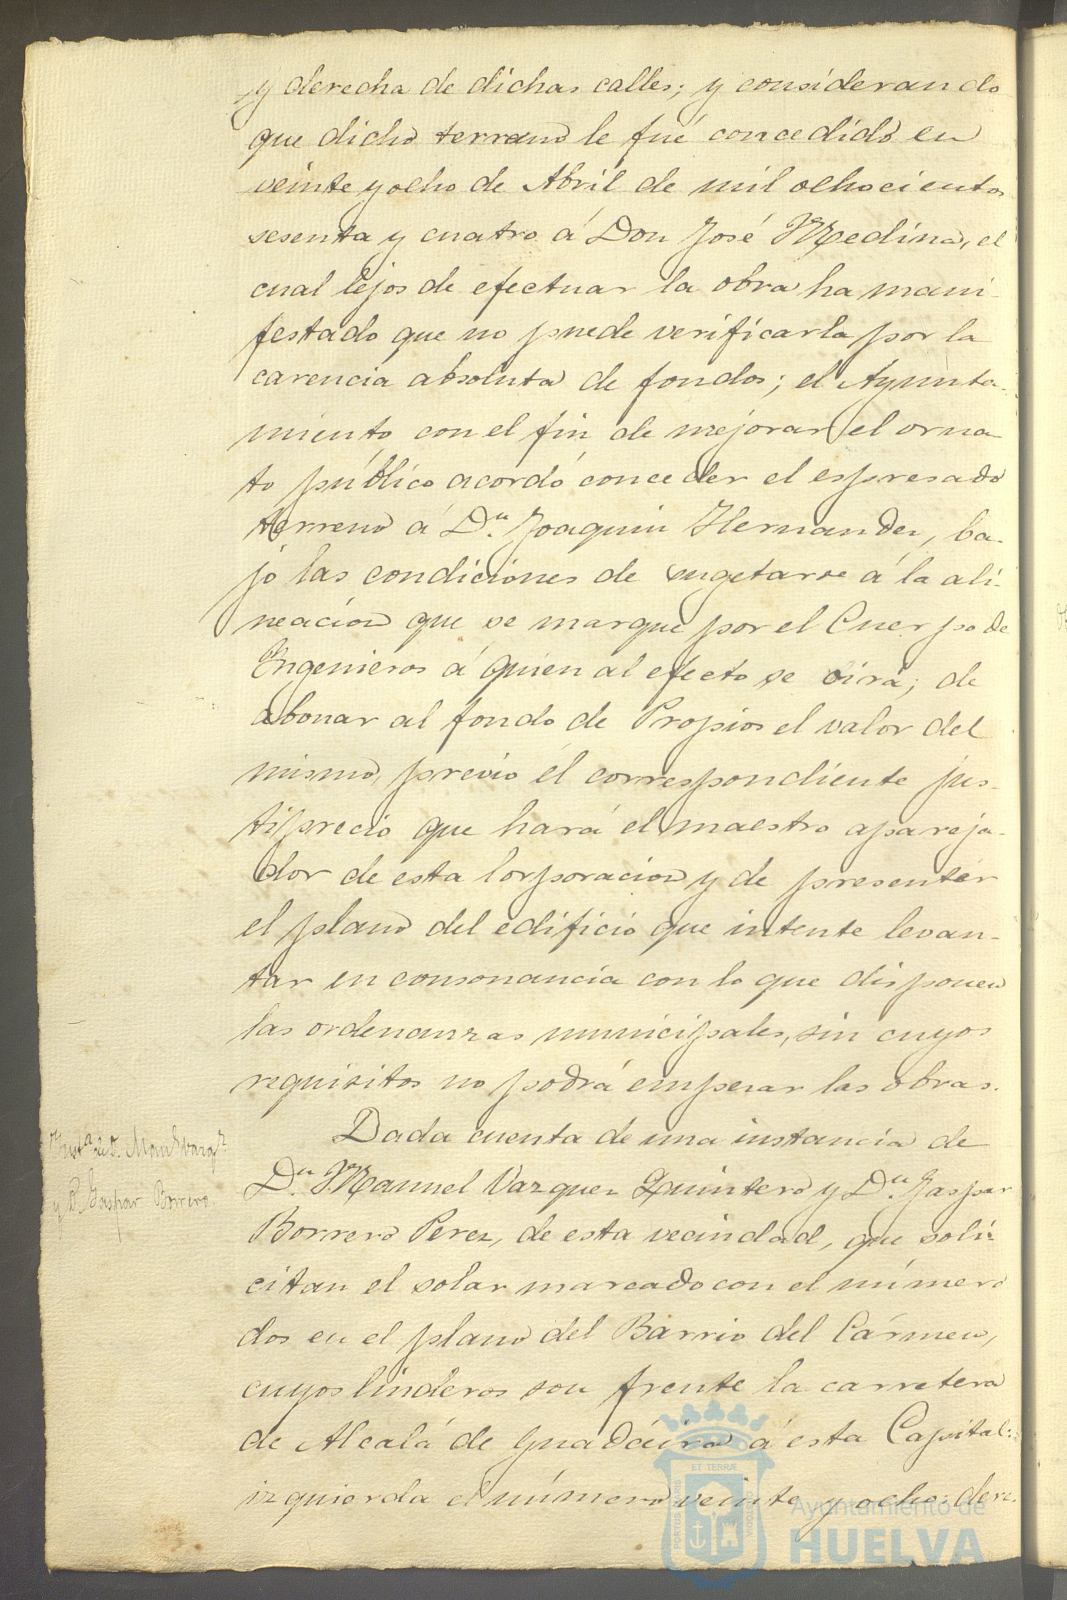 y derecha de dichas calles; y considerando
que dicho terreno le fué concedido en
veinte y ocho de Abril de mil ochocientos
sesenta y cuatro á Don José Medina, el
cual lejos de efectuar la obra ha mani-
festado que no puede verificarla por la
carencia absoluta de fondos; el Ayunta-
miento con el fin de mejorar el orna-
to público acordó conceder el espresado
terreno á Dn. Joaquin Hernandez, ba-
jo las condiciones de sugetarse á la ali-
neacion que se marque por el Cuerpo de
Ingenieros á quien al efecto se oirá; de
abonar al fondo de Propios el valor del
mismo, previo el correspondiente jus-
tiprecio que hará el maestro apareja-
dor de esta Corporacion y de presentar
el plano del edificio que intente levan-
tar en consonancia con lo que disponen
las ordenanzas municipales, sin cuyos
requisitos no podrá empezar las obras.
Dada cuenta de una instancia de
Dn. Manuel Vazquez Quintero y Dn. Gaspar
Borrero Perez, de esta vecindad, que soli-
citan el solar marcado con el número
dos en el plano del Barrio del Cármen,
cuyos linderos son frente la carretera
de Alcalá de Guadaira á esta Capital:
izquierda el número veinte y ocho: dere-
Insta. de D. Manl. Vazqz.
y D. Gaspar Borrero
ET TERRÆ
PORTUS MARIS
CUSTODIA
Ayuntamiento de
HUELVA